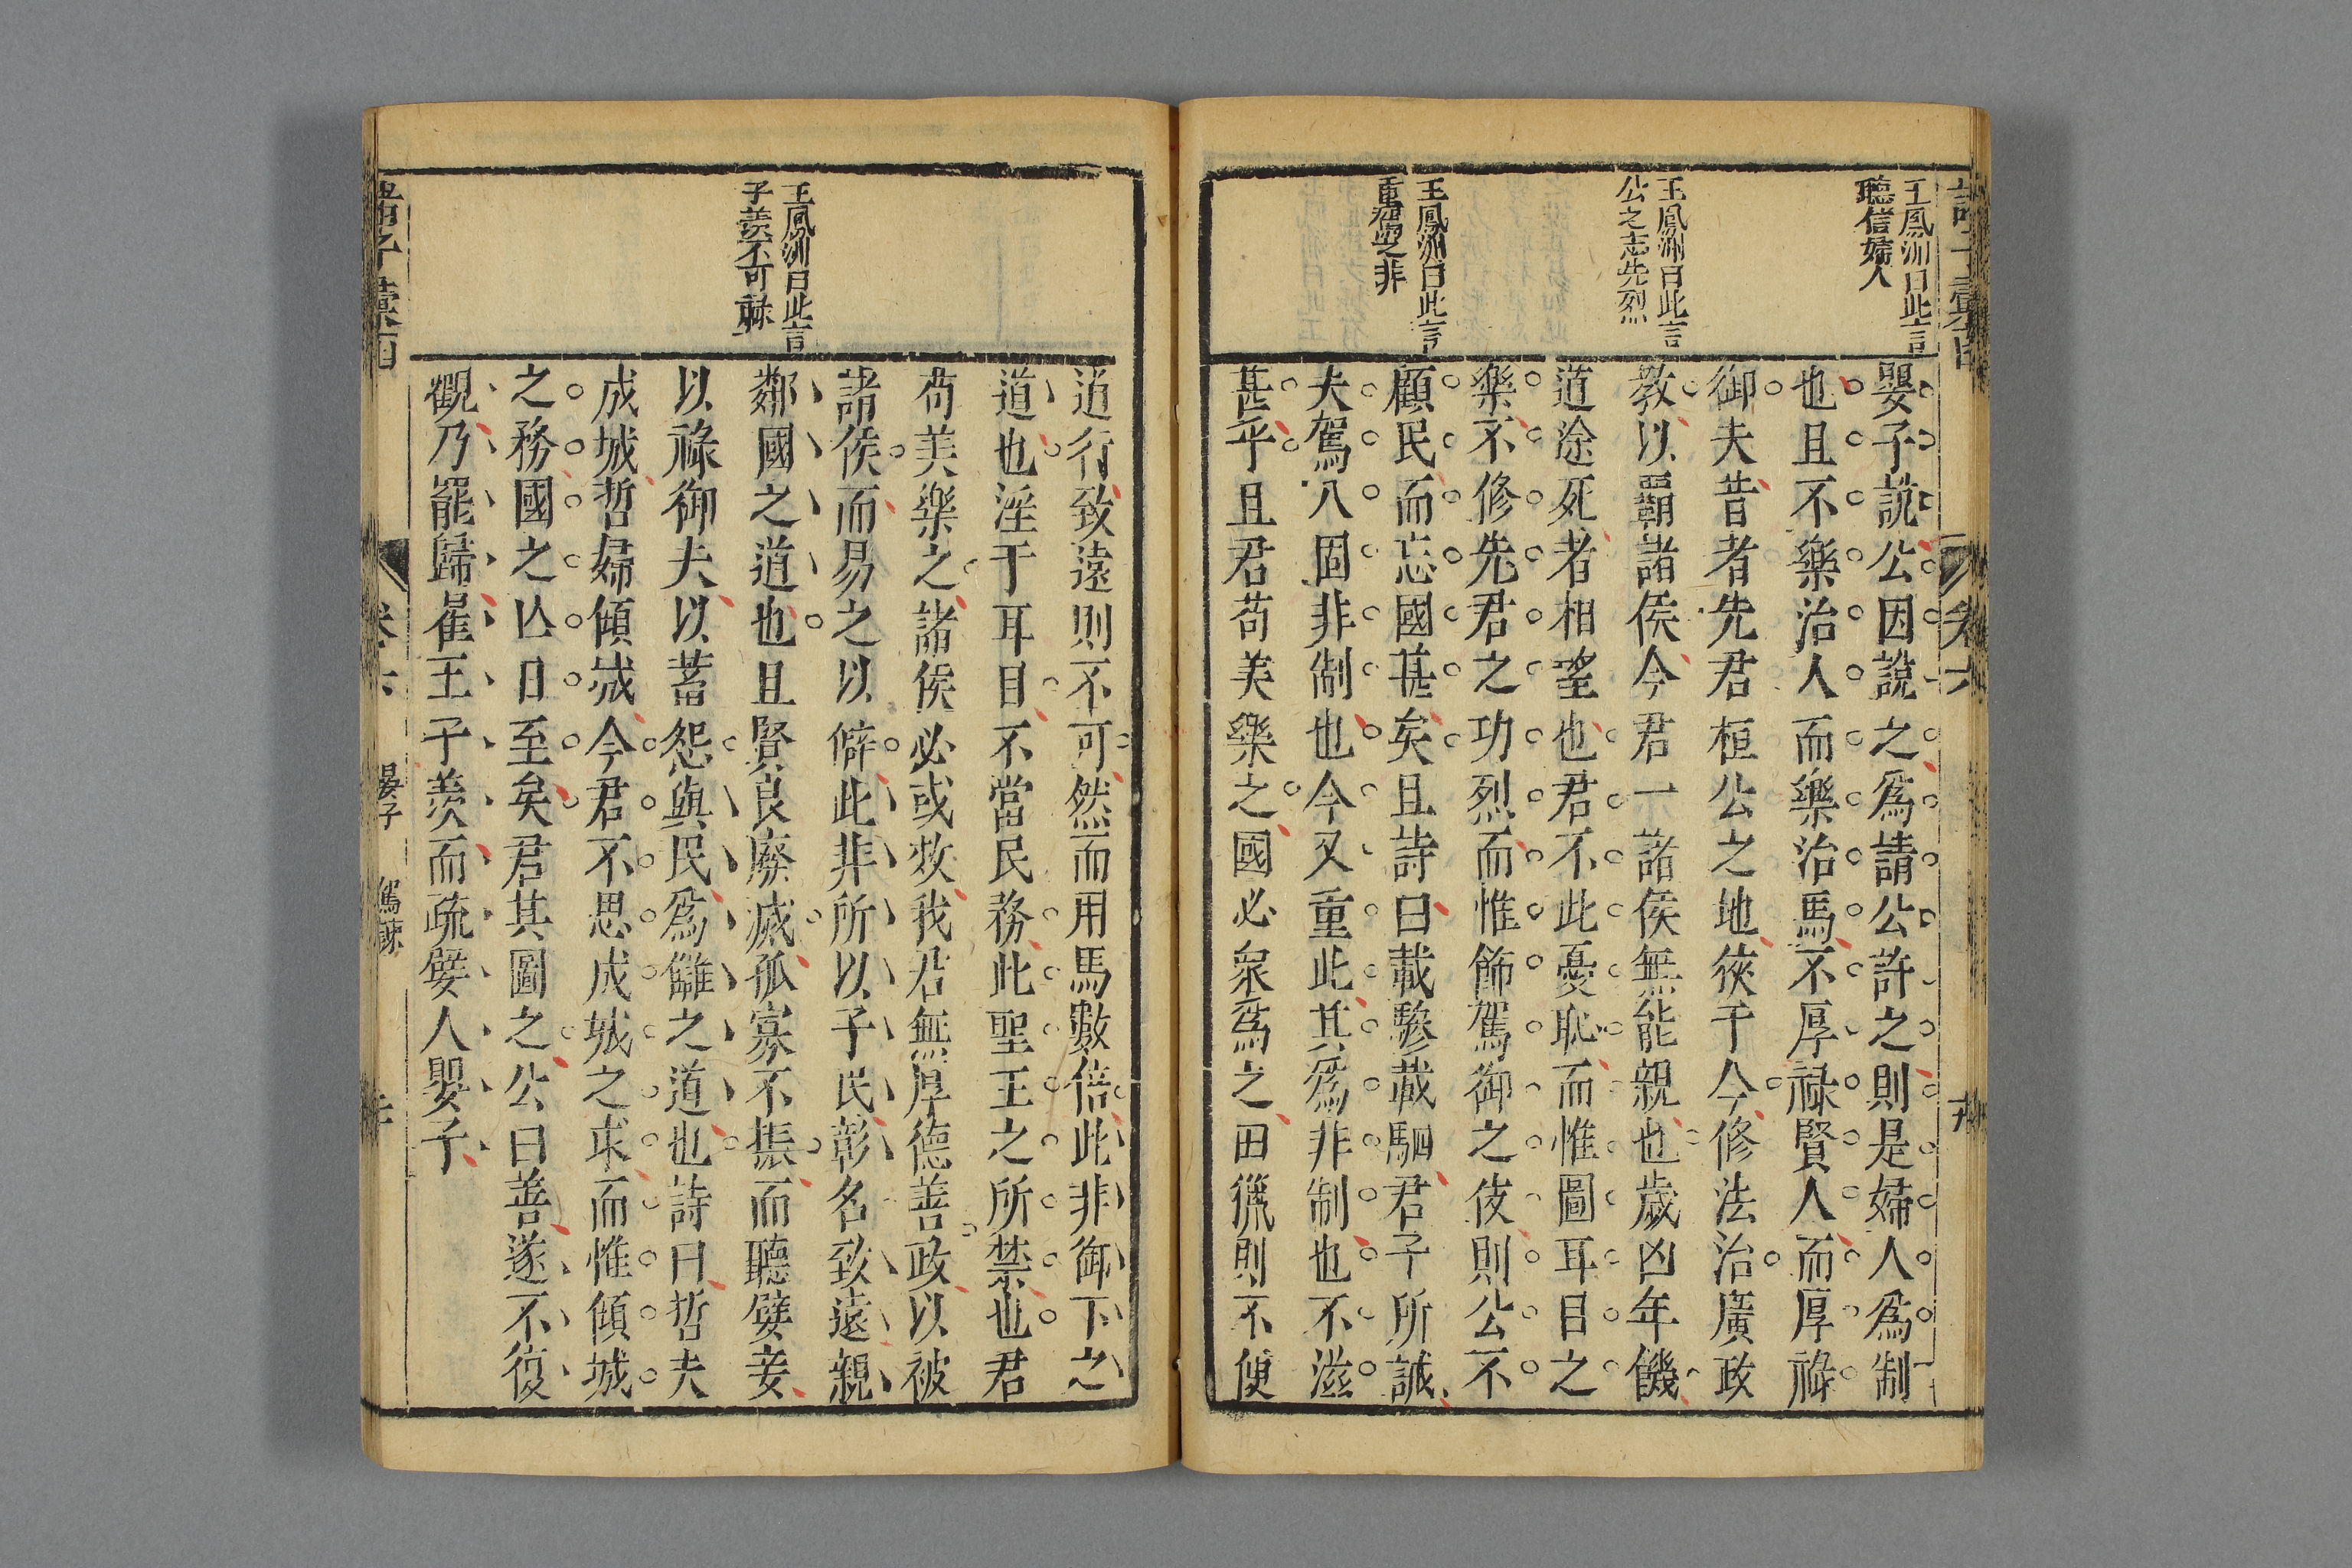 王鳳洲曰此言
聽信婦人
王鳳洲曰此言
公之志先烈
王鳳洲曰此言
重駕之非
嬰子說公因說之爲請公許之則是婦人爲制
也且不樂治人而樂治馬不厚祿賢人而厚祿
御夫昔者先君桓公之地狹于今修法治廣政
教以霸諸侯今君一諸侯無能親也歲凶年饑
道途死者相望也君不此憂恥而惟圖耳目之
樂不修先君之功烈而惟飾駕御之伎則公不
顧民而忘國甚矣且詩曰載驂載駟君子所誠
夫駕八固非制也今又重此其爲非制也不滋
甚乎且君苟美樂之國必衆爲之田獵則不便
王鳳洲曰此言
子羨不可祿
道行致遠則不可然而用馬數倍此非御下之
道也淫于耳目不當民務此聖王之所禁也君
苟美樂之諸侯必或效我君無厚德善政以被
諸侯而易之以僻此非所以子民彰名致遠親
鄰國之道也且賢良廢滅孤寡不振而聽嬖妾
以祿御夫以蓄怨與民爲讎之道也詩曰哲夫
成城哲婦傾城今君不思成城之求而惟傾城
之務國之亾日至矣君其圖之公曰善遂不復
觀乃罷歸崔王子羨而疏嬖人嬰子
諸子彙函
卷六
晏子
駕諫